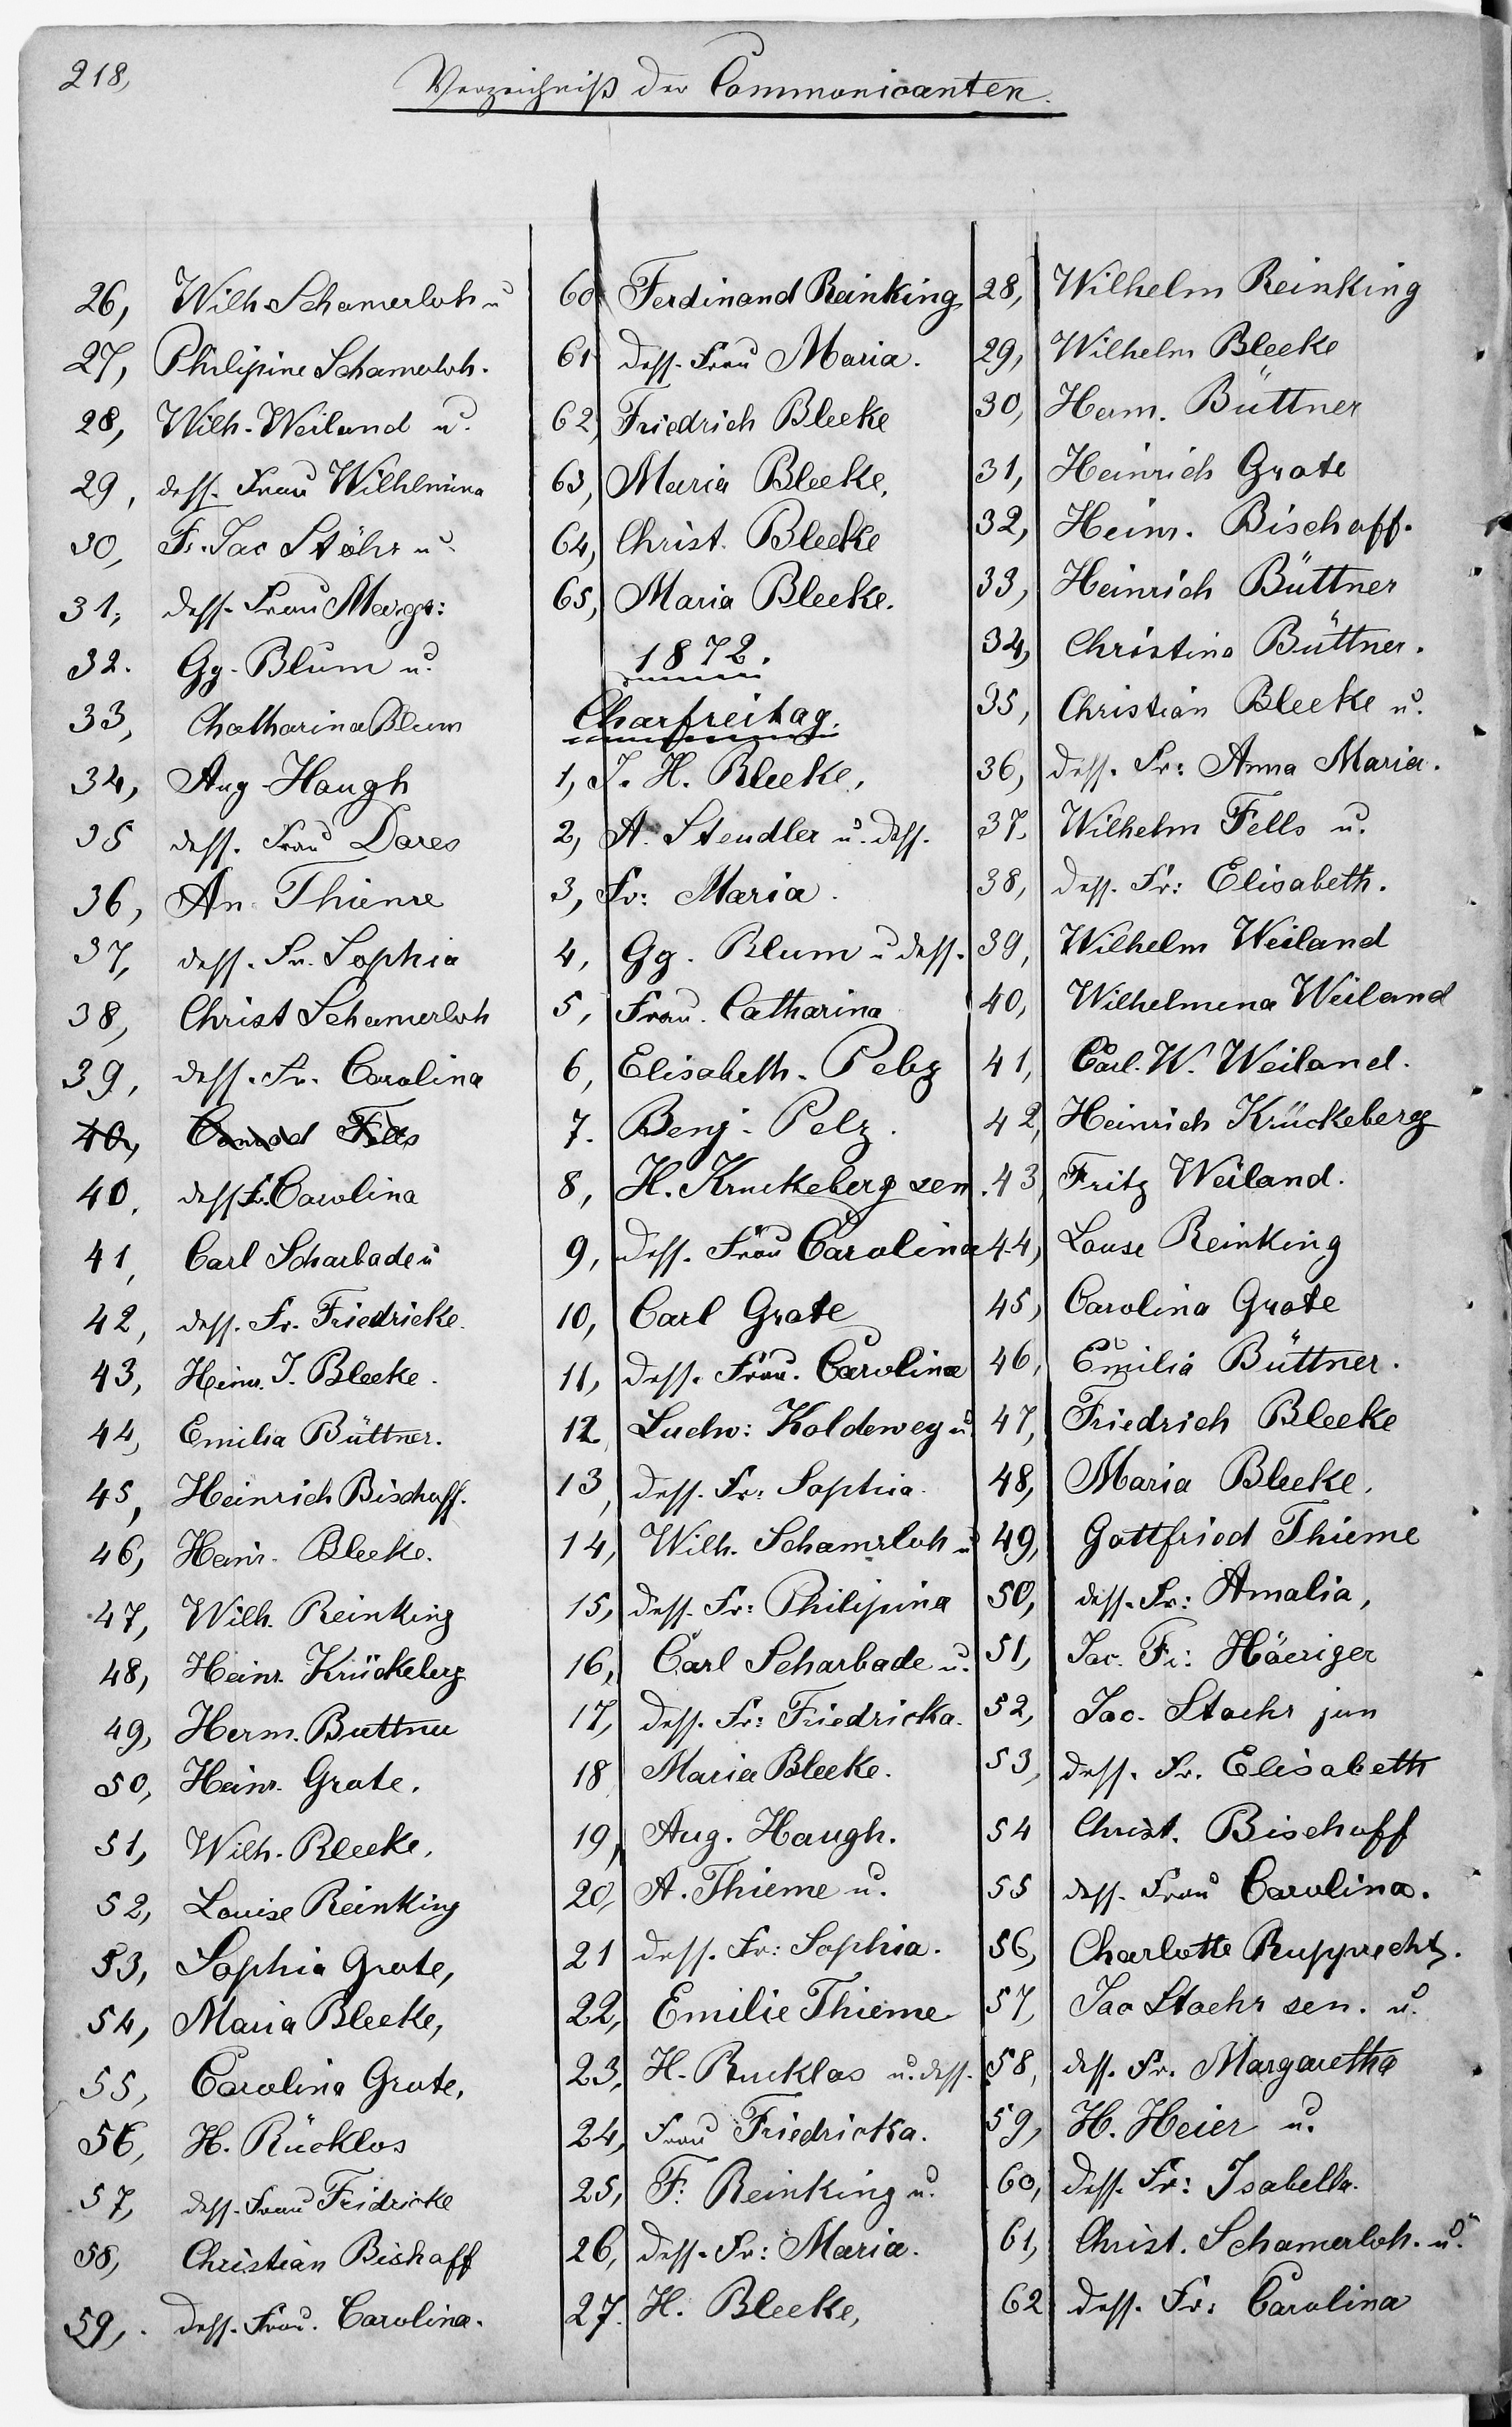 218,
Verzeichniß der Commonicanten.
26, Wilh. Schamerloh u
27, Philipine Schamerloh.
28, Wilh. Weiland u.
29, dess. Frau Wilhlmina
30, Fr. Jac Stöhr u.
31, dess. Frau Margr:
32. Gg. Blum u.
33, Chatharina Blum
34, Aug. Haugh
35 dess. Frau Dares
36, An. Thieme
37, dess. Fr. Sophia
38, Christ Schamerloh
39, dess. Fr. Carolina
40, Conrad Fells
40, dess Fr. Carolina
41, Carl Scharbade u
42, dess. Fr. Friedricke.
43, Heinr. J. Bleeke.
44, Emilia Büttner.
45, Heinrich Bischoff.
46, Heinr. Bleeke.
47, Wilh. Reinking
48, Heinr. Krückeberg
49, Herm. Buttner
50, Heinr. Grote.
51, Wilh. Bleeke.
52, Louise Reinking
53, Sophia Grote,
54, Maria Bleeke,
55, Carolina Grote,
56, H. Rücklos
57, dess. Frau Fridricke
58, Christian Bishoff
59, dess. Frau. Carolina.
60 Ferdinand Reinking
61 dess. Frau Maria.
62, Friedrich Bleeke
63, Maria Bleeke,
64, Christ. Bleeke
65, Maria Bleeke.
1872.
Charfreitag.
1, J. H. Bleeke,
2, A. Stendler u. dess.
3, Fr: Maria.
4, Gg. Blum u dess.
5, Frau. Catharina
6, Elisabeth. Pelz
7. Benj. Pelz.
8, H. Kruckeberg sen.
9, dess. Frau Carolina
10, Carl Grote
11, dess. Frau. Carolina
12 Ludw: Koldewey u
13, dess. Fr: Sophia.
14, Wilh. Schamrloh u
15, dess. Fr: Philipina
16, Carl Scharbade u.
17, dess. Fr: Friedricka.
18 Maria Bleeke.
19, Aug. Haugh.
20, A. Thieme u.
21 dess. Fr: Sophia.
22, Emilie Thieme
23, H. Rucklos u. dess.
24, Frau Friedricka.
25, F: Reinking u.
26, dess. Fr: Maria.
27. H. Bleeke,
28, Wilhelm Reinking
29, Wilhelm Bleeke
30, Herm. Büttner
31, Heinrich Grote
32, Heinr. Bischoff.
33, Heinrich Büttner
34, Christina Büttner.
35, Christian Bleeke u.
36, dess. Fr: Anna Maria.
37, Wilhelm Fells u.
38, dess. Fr: Elisabeth.
39, Wilhelm Weiland
40, Wilhelmena Weiland
41, Carl. W. Weiland.
42, Heinrich Krückeberg
43, Fritz Weiland.
44, Louse Reinking
45, Carolina Grote
46, Emilia Büttner.
47, Friedrich Bleeke
48, Maria Bleeke.
49, Gottfried Thieme
50, dess. Fr: Amalia,
51, Jac. Fr: Häeriger
52, Jac. Stoehr jun
53, dess. Fr. Elisabeth
54 Christ. Bischoff
55 dess. Frau Carolina.
56, Charlotte Rupprecht.
57, Jac Stoehr sen. u.
58, dess. Fr. Margaretha
59, H. Heier u.
60, dess. Fr: Isabella.
61, Christ. Schamerloh. u.
62 dess. Fr: Carolina